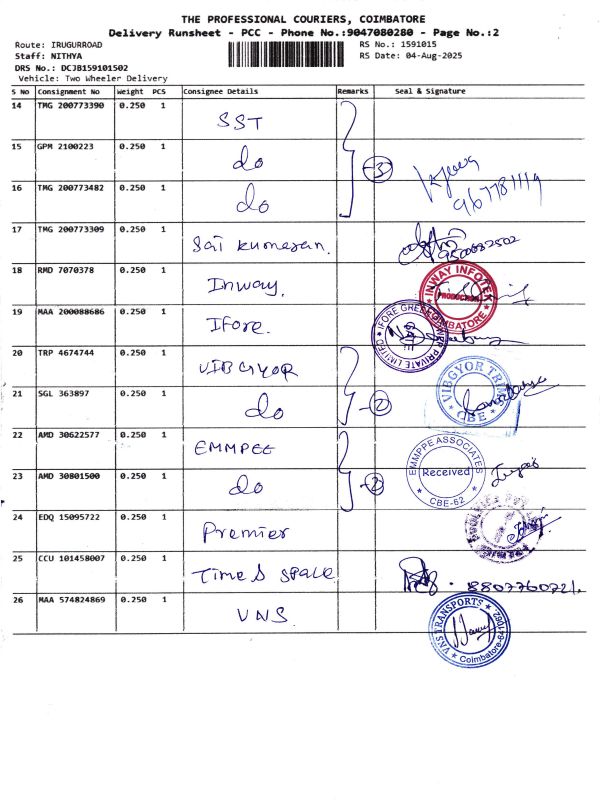 THE PROFESSIONAL COURIERS, COIMBATORE
Delivery Runsheet - PCC - Phone No.:9047080280 - Page No.:2
Route: IRUGURROAD RS No.: 1591015
Staff: NITHYA RS Date: 04-Aug-2025
DRS No.: DCJB159101502
Vehicle: Two Wheeler Delivery
S No Consignment No Weight PCS Consignee Details Remarks Seal & Signature
14 TMG 200773390 0.250 1 SST
15 GPM 2100223 0.250 1 do 3
16 TMG 200773482 0.250 1 do 9677811119
17 TMG 200773309 0.250 1 Sai kumeran. 9500832502
18 RMD 7070378 0.250 1 Inway. INWAY INFOTEK PRODUCTION COIMBATORE
19 MAA 200088686 0.250 1 Ifore. IFORE PRIVATE LIMITED
20 TRP 4674744 0.250 1 VIBGYOR
21 SGL 363897 0.250 1 do 2 VIBGYOR TRIM CBE
22 AMD 30622577 0.250 1 EMMPEE
23 AMD 30801500 0.250 1 do 2 EMMPPE ASSOCIATES Received CBE-62
24 EDQ 15095722 0.250 1 Premier
25 CCU 101458007 0.250 1 Time & space 8807760721.
26 MAA 574824869 0.250 1 VNS VNS TRANSPORTS Coimbatore-641062